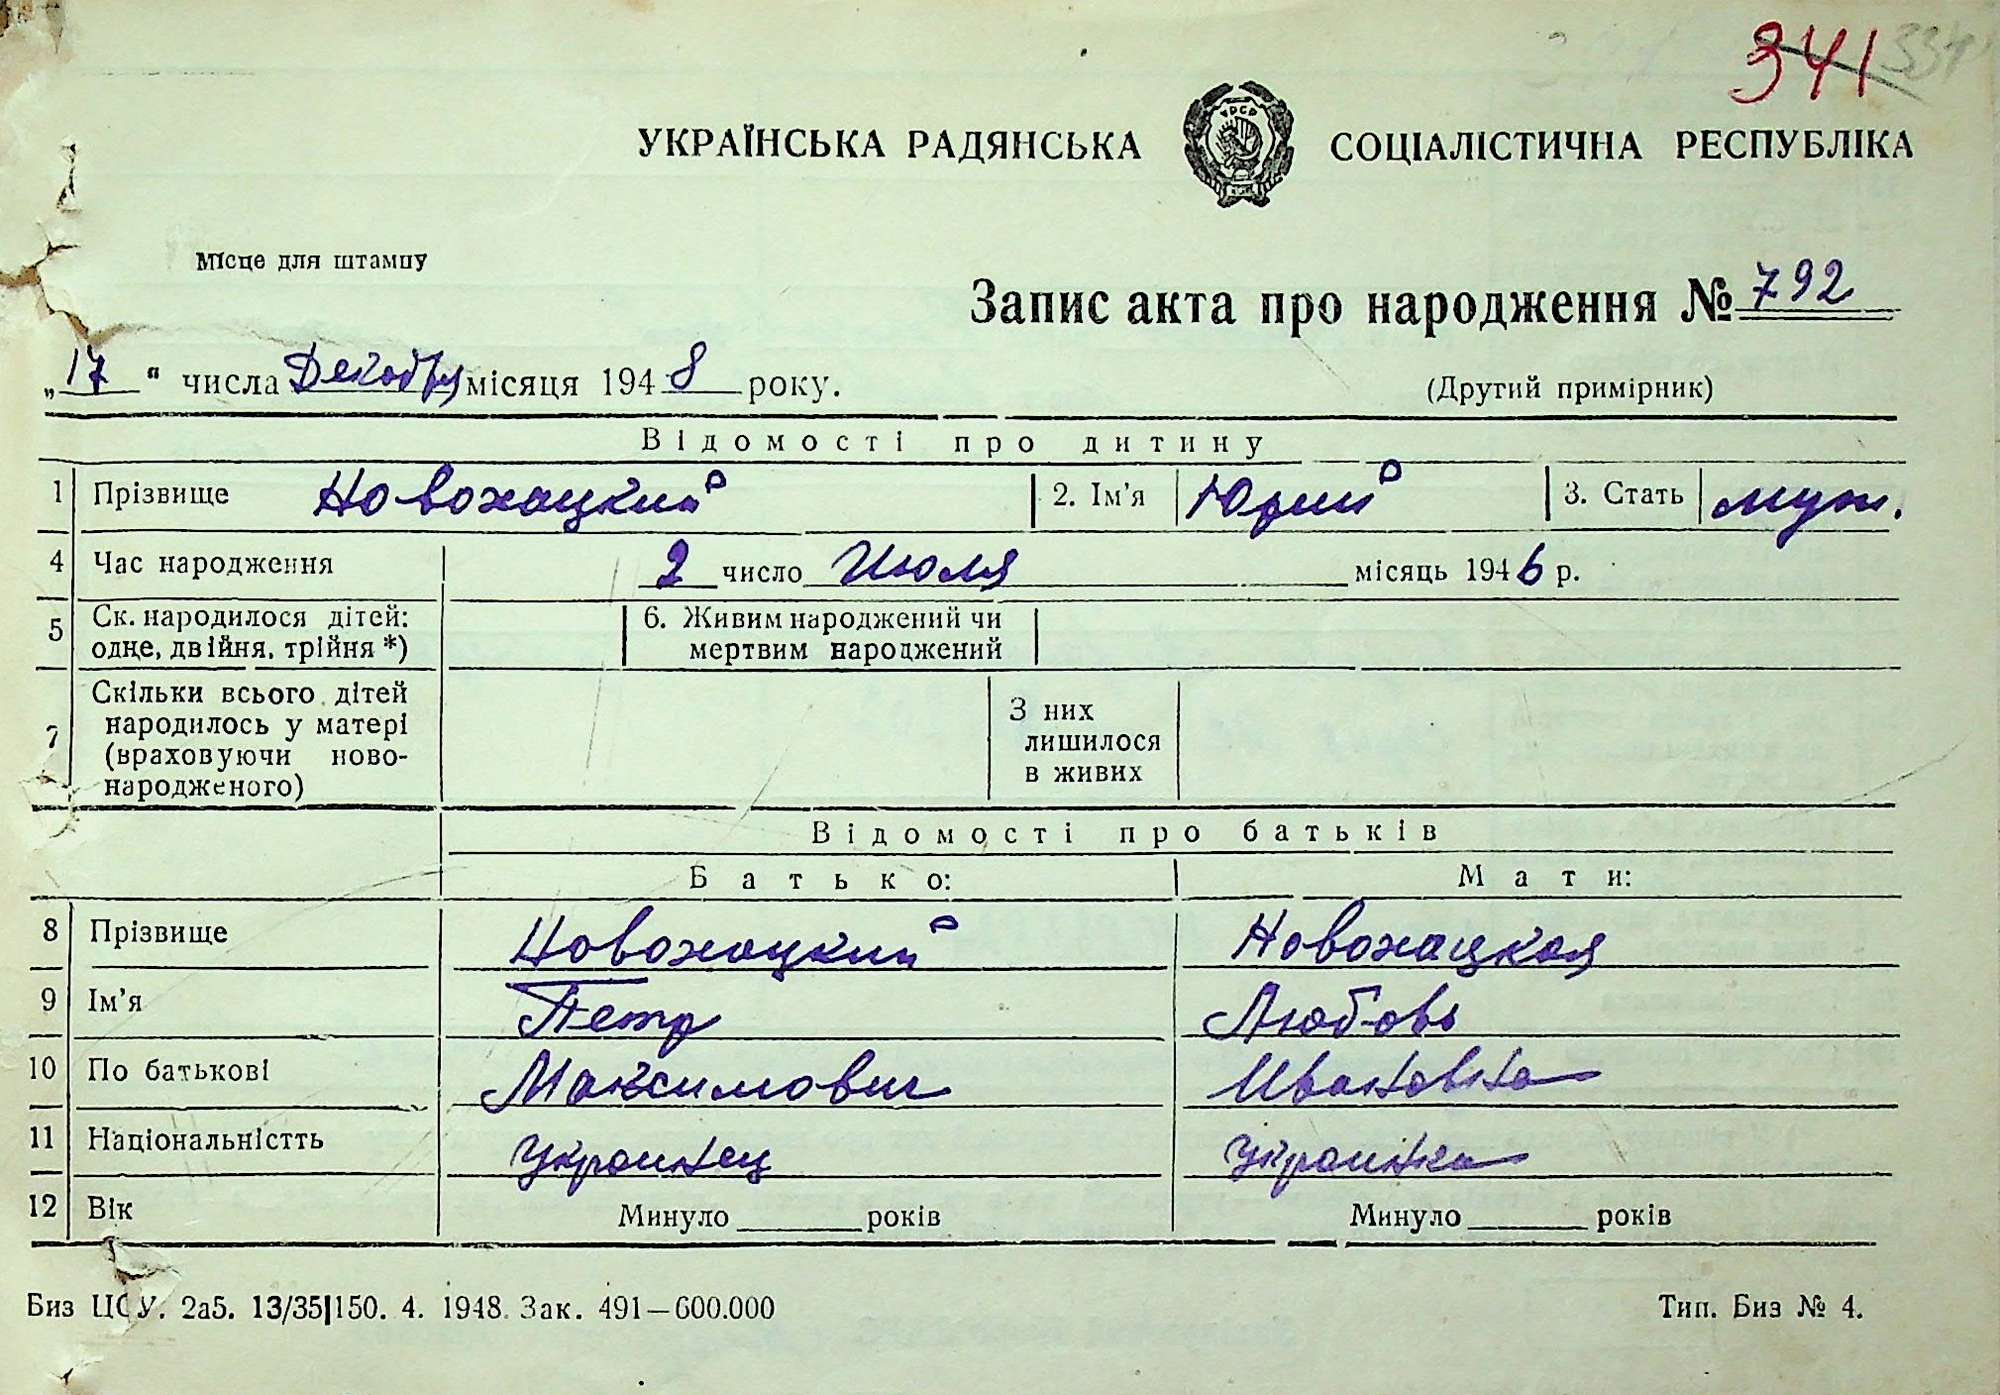 341 331
УКРАЇНСЬКА РАДЯНСЬКА СОЦІАЛІСТИЧНА РЕСПУБЛІКА
УРСР
Місце для штампу
Запис акта про народження № 792
„17“ числа Декабря місяця 1948 року.
(Другий примірник)
Відомості про дитину
1 Прізвище Новохацкий 2. Ім'я Юрий 3. Стать муж.
4 Час народження 2 число Июля місяць 1946 р.
5 Ск. народилося дітей: одне, двійня, трійня *) 6. Живим народжений чи мертвим народжений
7 Скільки всього дітей народилось у матері (враховуючи ново-народженого) З них лишилося в живих
Відомості про батьків
Батько: Мати:
8 Прізвище Новохацкий Новохацкая
9 Ім'я Петр Любовь
10 По батькові Максимович Ивановна
11 Національністть Украинец Украинка
12 Вік Минуло ______ років Минуло ______ років
Биз ЦСУ. 2аб. 13/35|150. 4. 1948. Зак. 491—600.000 Тип. Биз № 4.